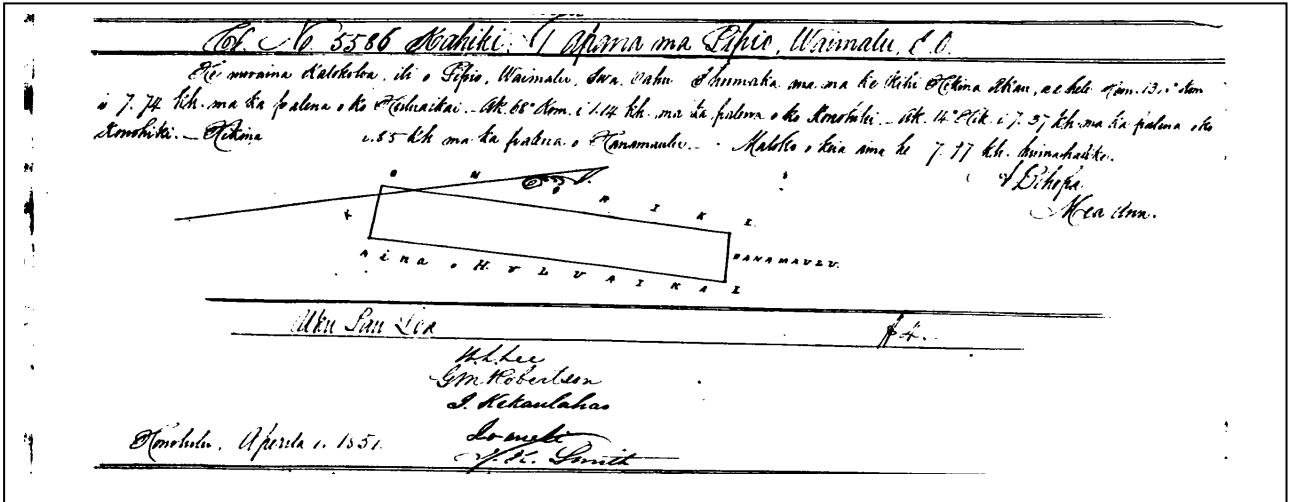 No 5586 Kahiki. Apana ma Pipio, Waimalu, E. O.
He moraina Kalokoloa, ili o Pipio, Waimalu, Ewa. Oahu E hoomaka ana ma ke Kihi Hikina Akau, a e hele Kom. 13.1° Kom
i 7.74 kh. ma ka palena o ko Huluaikai. Ak. 68° Kom. i 1.14 kh. ma ka palena o ko Konohiki. Ak. 14° Hik. i 7.37 kh ma ka palena o ko
Konohiki. Hikina .85 kh ma ka palena o Panamaulu. Maloko o keia aina he 7.97 kh. kuinahalike.
J Bihopa
Mea Ana.
K O N O H I K I
PANAMAULU.
Aina o HULUAIKAI
Uku Pau Loa $4.
W. L. Lee
G M Robertson
J. Kekaulahao
Ioane Ii
J. K. Smith
Honolulu. Aperila 1. 1851.